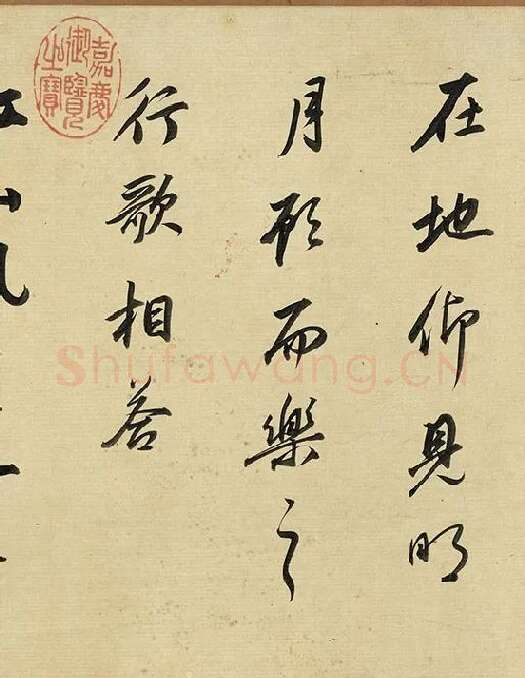 在地仰見明
月顧而樂之
行歌相答
嘉慶御覽之寶
Shufawang.CN